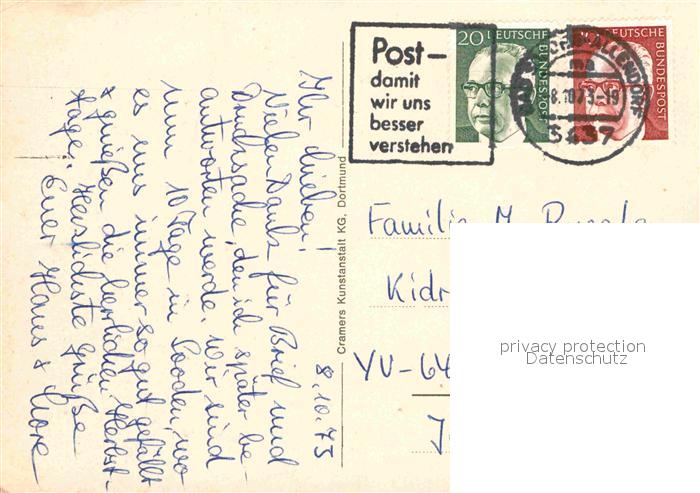 8.10.73
Ihr Lieben!
Vielen Dank für Brief und
Drucksache, den ich später be-
antworten werde. Wir sind
nun 10 Tage in Sooden, wo
es uns immer so gut gefällt
& genießen die herrlichen Herbst-
tage. Herzlichste Grüße
Euer Hans & Lore
Cramers Kunstanstalt KG, Dortmund
Post-
damit
wir uns
besser
verstehen
20 DEUTSCHE BUNDESPOST
DEUTSCHE BUNDESPOST
ALLENDORF
8.10.73-19
3437
Familie M.
Kidr
YU-64
J
privacy protection
Datenschutz